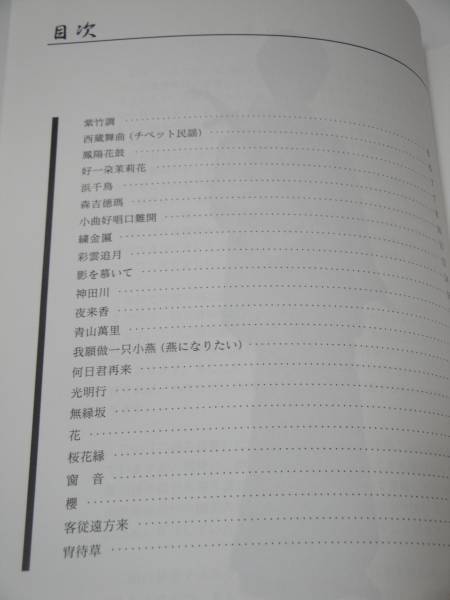 目次
紫竹調
西蔵舞曲 (チベット民謡)
鳳陽花鼓
好一朶茉莉花
浜千鳥
森吉德瑪
小曲好唱口難開
繡金匾
彩雲追月
影を慕いて
神田川
夜来香
青山萬里
我願做一只小燕 (燕になりたい)
何日君再来
光明行
無縁坂
花
桜花縁
窗 音
櫻
客従遠方来
宵待草